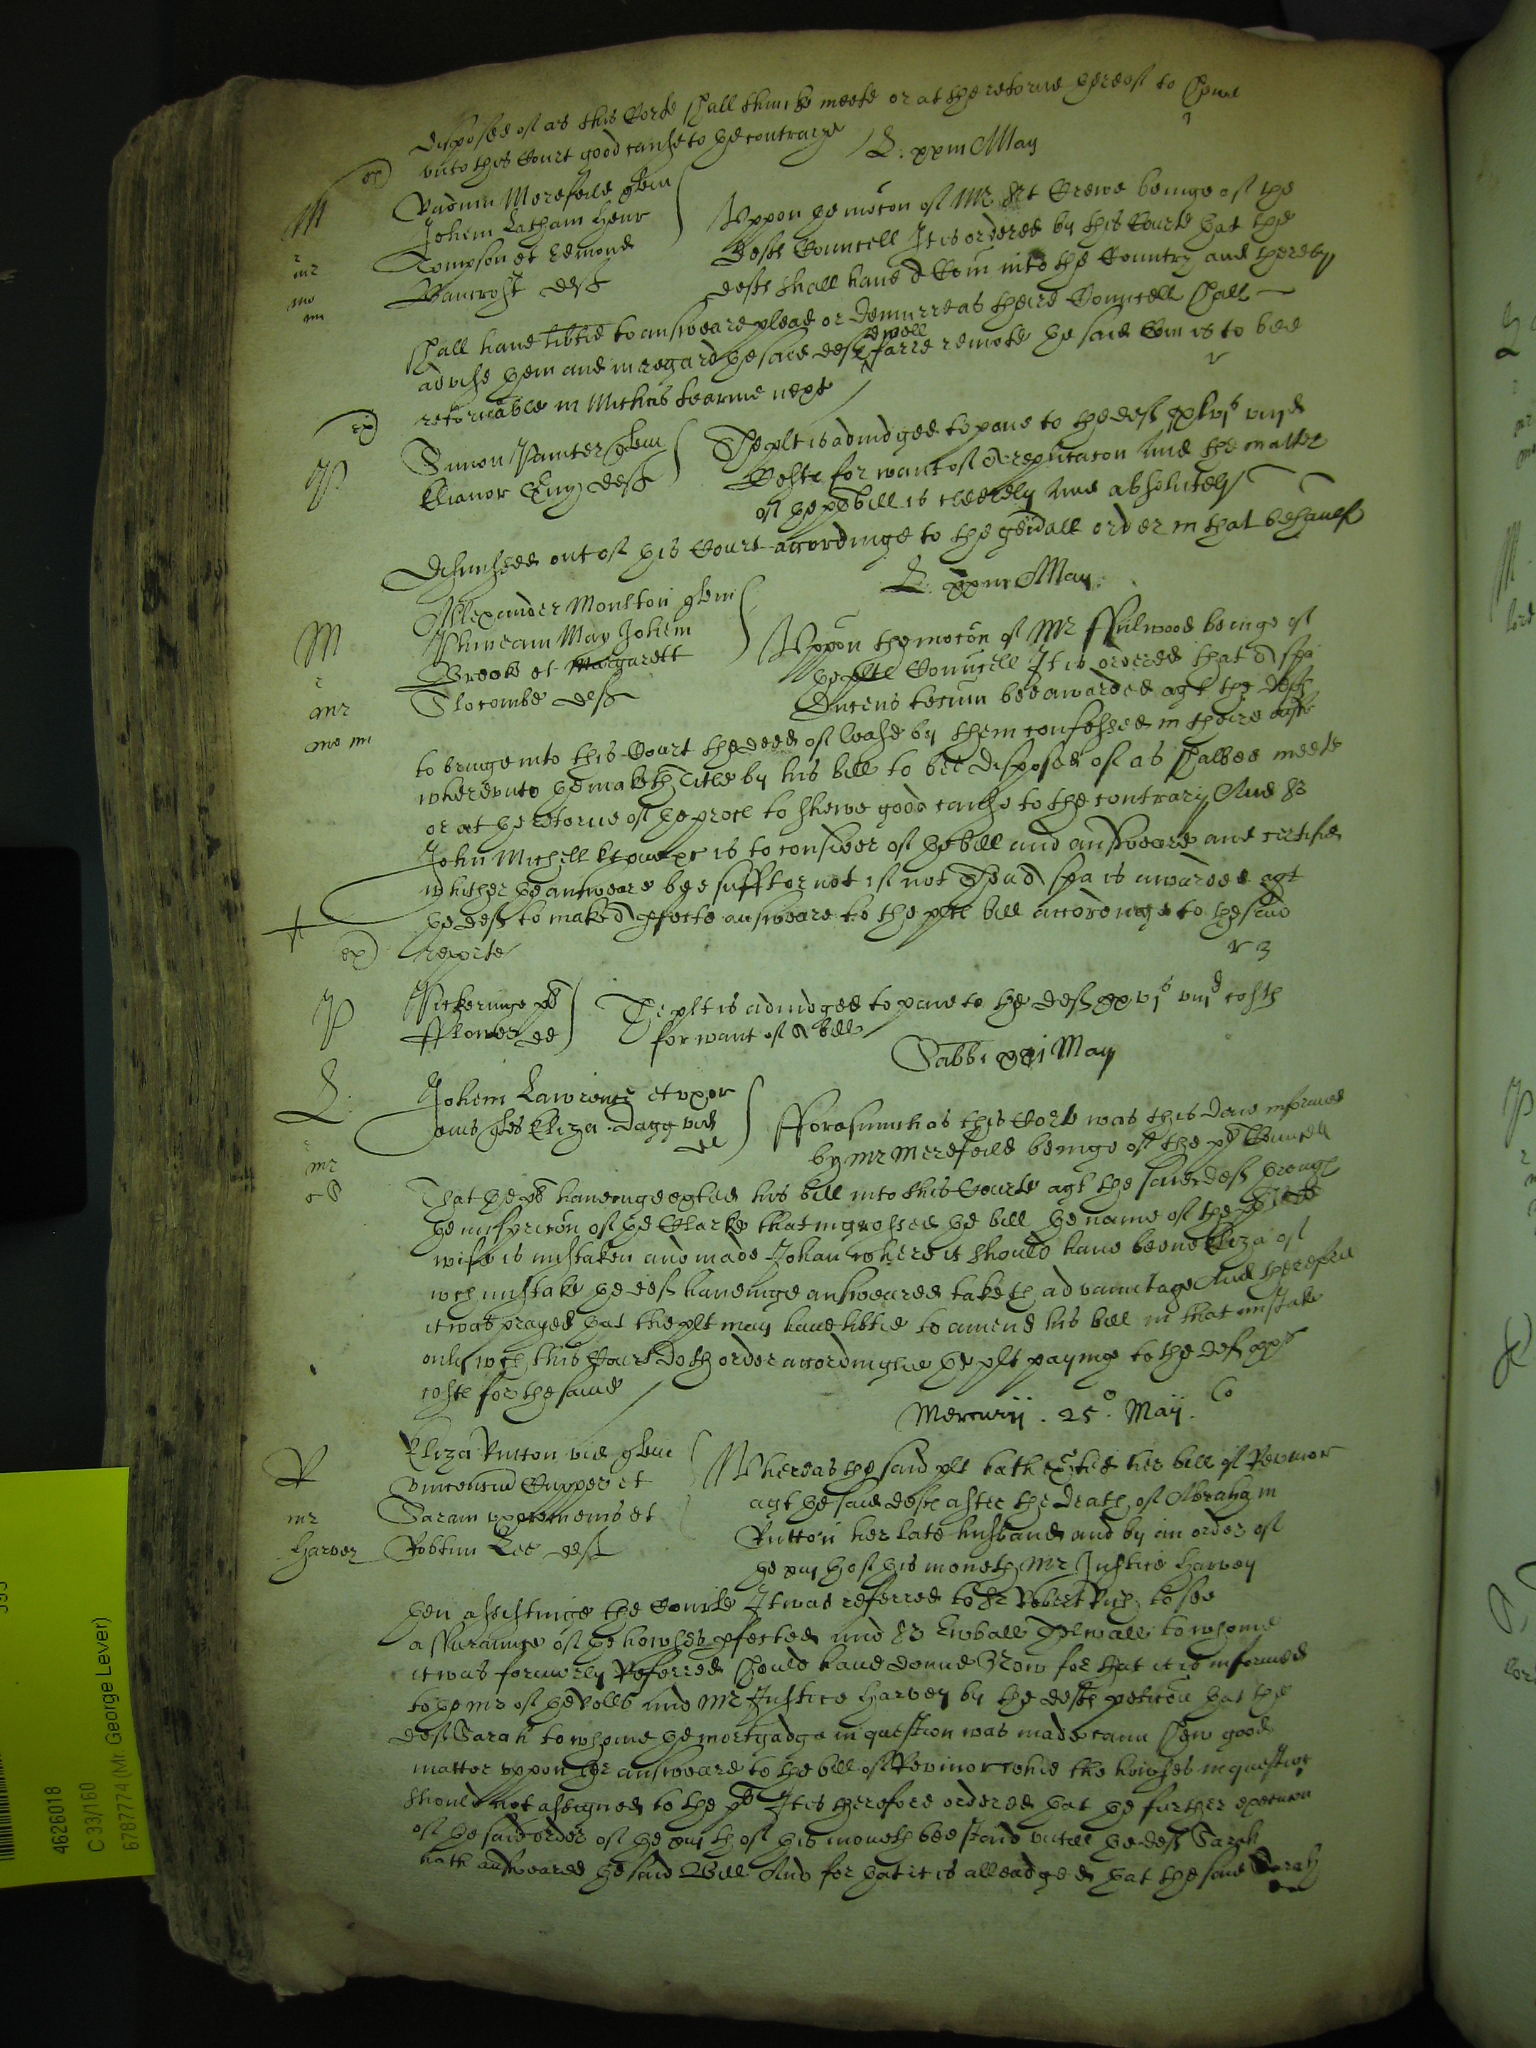 disposed of as this Corte shall thincke meete or at the retorne thereof to shewe
unto this Court good cause to the contrary
L. xxiii May
ex)
M
mr
Radum Merefeild quer
Johem Latham Henr
Tompson et Edmond
Bancroft deft
Uppon the mocon of Mr Crewe beinge of the
defts Councell It is ordered by this Courte that the
defts shall have a Com into the Country and thereby
shall have libtie to answeare plead or demurre as theire Councell shall
advise them and in regard the said deft dwell farre remote the said Com is to bee
retornable in Michas tearme next
ex)
P
Simon Painter quer
Elianor deft
The plt is adiudged to paie to the deft xxvjs viijd
Costs for want of a replicacon And the matter
of the plts bill is cleerely And absolutely
dismissed out of this Court accordinge to the genall order in that behaulf
L. xxiii May
M
mr
Alexander Moulton quer
May Johem
Brooke et Margarett
Slocombe deft
Uppon the mocon of Mr ffulwood beinge of
the plts Councell It is ordered that a spa
Ducens tecum bee awarded agt the defts
to bringe into this Court the deed of lease by them confessed in theire
whereunto he maketh title by his bill to bee disposed of as shalbee meete
or at the retorne of the proces to shewe good cause to the contrary And Sr
John Michell kt is to consider of the bill and answeare and certifie
whither the answeare bee suffit or not if not Then a spa is awarded agt
the deft to make a pfecte answeare to the plts bill accordinge to the said
ex) reporte
P
Pickeringe plt
fflower de
The plt is adiudged to paie to the deft xxvjs viijd costs
for want of a bill
Sabbi xxi May
L
mr
Johem Lawrence et uxor
eius ples Eliza Dagg vid
de
fforasmuch as this Corte was this daie informed
by Mr Merefeild beinge of the plts Councell
That the plt haveinge exhibited his bill into this Courte agt the said deft through
the misprision of the Clarke that ingrossed the bill the name of the plts
wife is mistaken and made Johan where it should have beene Eliza of
wch mistake the deft haveinge answeared taketh advantage And therefore
it was prayed that the plt may have libtie to amend his bill in that mistake
only wch this Court doth order accordinglie the plt payinge to the deft xxs
costs for the same
Mercurij . 25o. Maij.
R
mr
Harvey
Eliza Rutton vid quer
Vincentiu Supper et
Saram uxorem eius et
Robtum Lee deft
Whereas the said plt hath exhibited her bill of Revivor
agt the said defts after the death of Abraham
Rutton her late husband and by an order of
the xvijth of this moneth Mr Justice Harvey
then assistinge the Courte It was referred to Sr Robert Rich to see
assurance of the howses pfected and Sr Ewball Thelwall to whome
it was formerly Referred should have donne Now for that it is informed
to the Mr of the Rolls and Mr Justice Harvey by the defts peticon that the
deft Sarah to whome the mortgadge in question was made cann shew good
matter uppon her answeare to the bill of Revivor while the howses in question
should not assigned to the plt It is therefore ordered that the further execucon
of the said order of the xvijth of this moneth bee staid untill the deft Sarah
hath answeared the said Bill And for that it is alleadged that the said Sarah
4626018
C 33/160
6787774 (Mr George Lever)